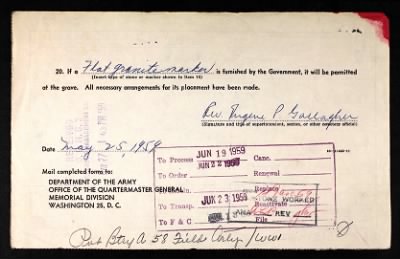 20. If a Flat granite marker is furnished by the Government, it will be permitted
(Insert type of stone or marker shown in Item 10)
at the grave. All necessary arrangements for its placement have been made.
Rev. Eugene P. Gallagher
(Signature and title of superintendent, sexton, or other cemetery official)
Date May 25, 1959
Mail completed forms to:
DEPARTMENT OF THE ARMY
OFFICE OF THE QUARTERMASTER GENERAL
MEMORIAL DIVISION
WASHINGTON 25, D. C.
To Process JUN 19 1959 Canc.
To Order JUN 22 1959 Renewal
Replace
To Transp. JUN 23 1959 Reactivate
To F & C File
WORKED
REV
Btry A 58 Field Arty / WWI